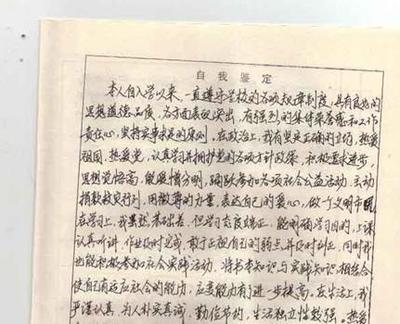 自我鉴定
本人自入学以来，一直遵守学校的各项规章制度，具有良好的
思想道德品质，各方面表现突出，有强烈的集体荣誉感和工作
责任心，坚持实事求是的原则。在政治上，我有坚定正确的立场，热爱
祖国，热爱党，认真学习并拥护党的各项方针政策，积极要求进步，
思想觉悟高，爱憎分明，踊跃参加各项社会公益活动，主动
捐款救灾行列，用微薄的力量，表达自己的爱心，做个文明市民
在学习上，我虽然基础差，但学习态度端正，能明确学习目的，上课
认真听讲，作业及时完成，敢于正视自己的弱点并及时纠正，同时我
也能积极参加社会实践活动，将书本知识与实践知识相结合
使自己有适应社会的能力，应变能力有进一步提高。在生活上，我
严谨认真，为人朴实真诚，勤俭节约，生活独立性较强。热爱